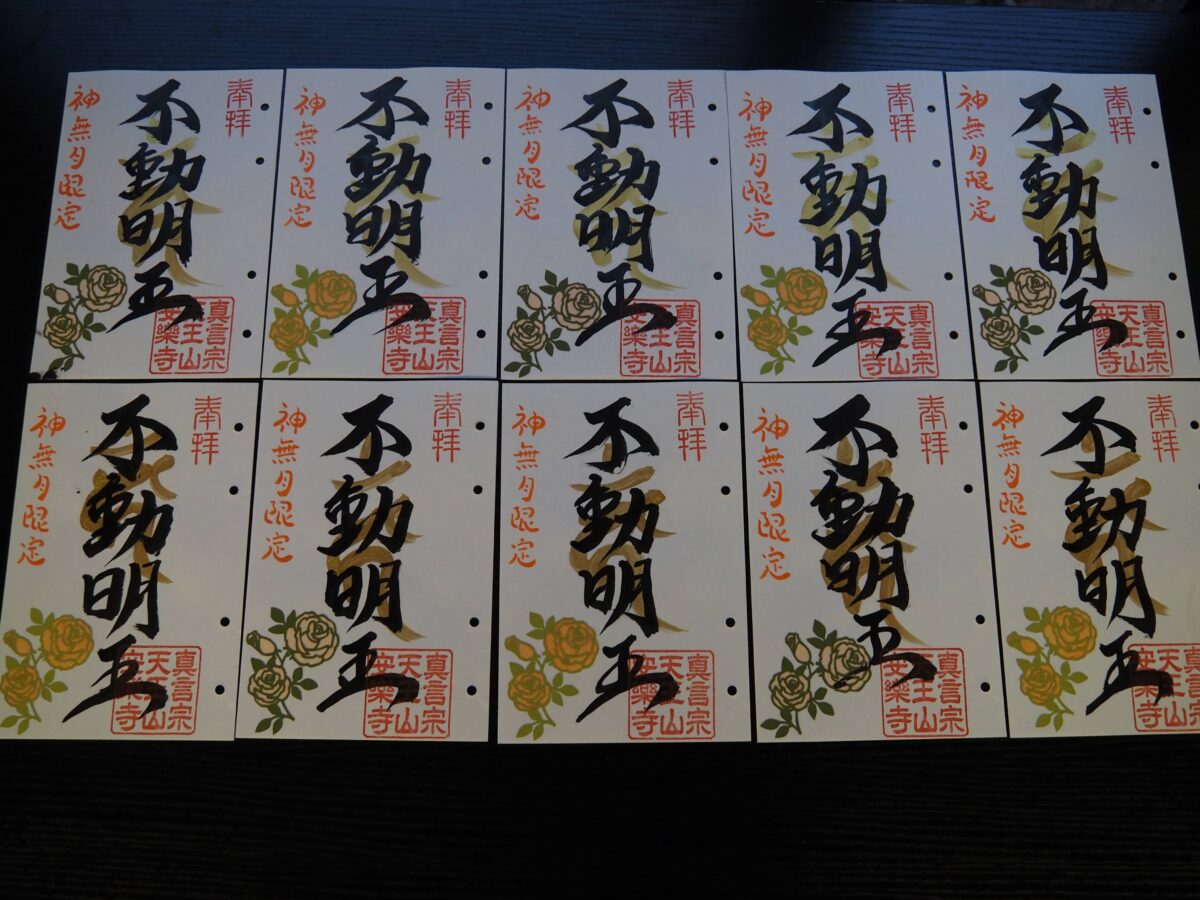 奉拝
不動明王
神無月限定
真言宗
天王山
安樂寺
奉拝
不動明王
神無月限定
真言宗
天王山
安樂寺
奉拝
不動明王
神無月限定
真言宗
天王山
安樂寺
奉拝
不動明王
神無月限定
真言宗
天王山
安樂寺
奉拝
不動明王
神無月限定
真言宗
天王山
安樂寺
奉拝
不動明王
神無月限定
真言宗
天王山
安樂寺
奉拝
不動明王
神無月限定
真言宗
天王山
安樂寺
奉拝
不動明王
神無月限定
真言宗
天王山
安樂寺
奉拝
不動明王
神無月限定
真言宗
天王山
安樂寺
奉拝
不動明王
神無月限定
真言宗
天王山
安樂寺